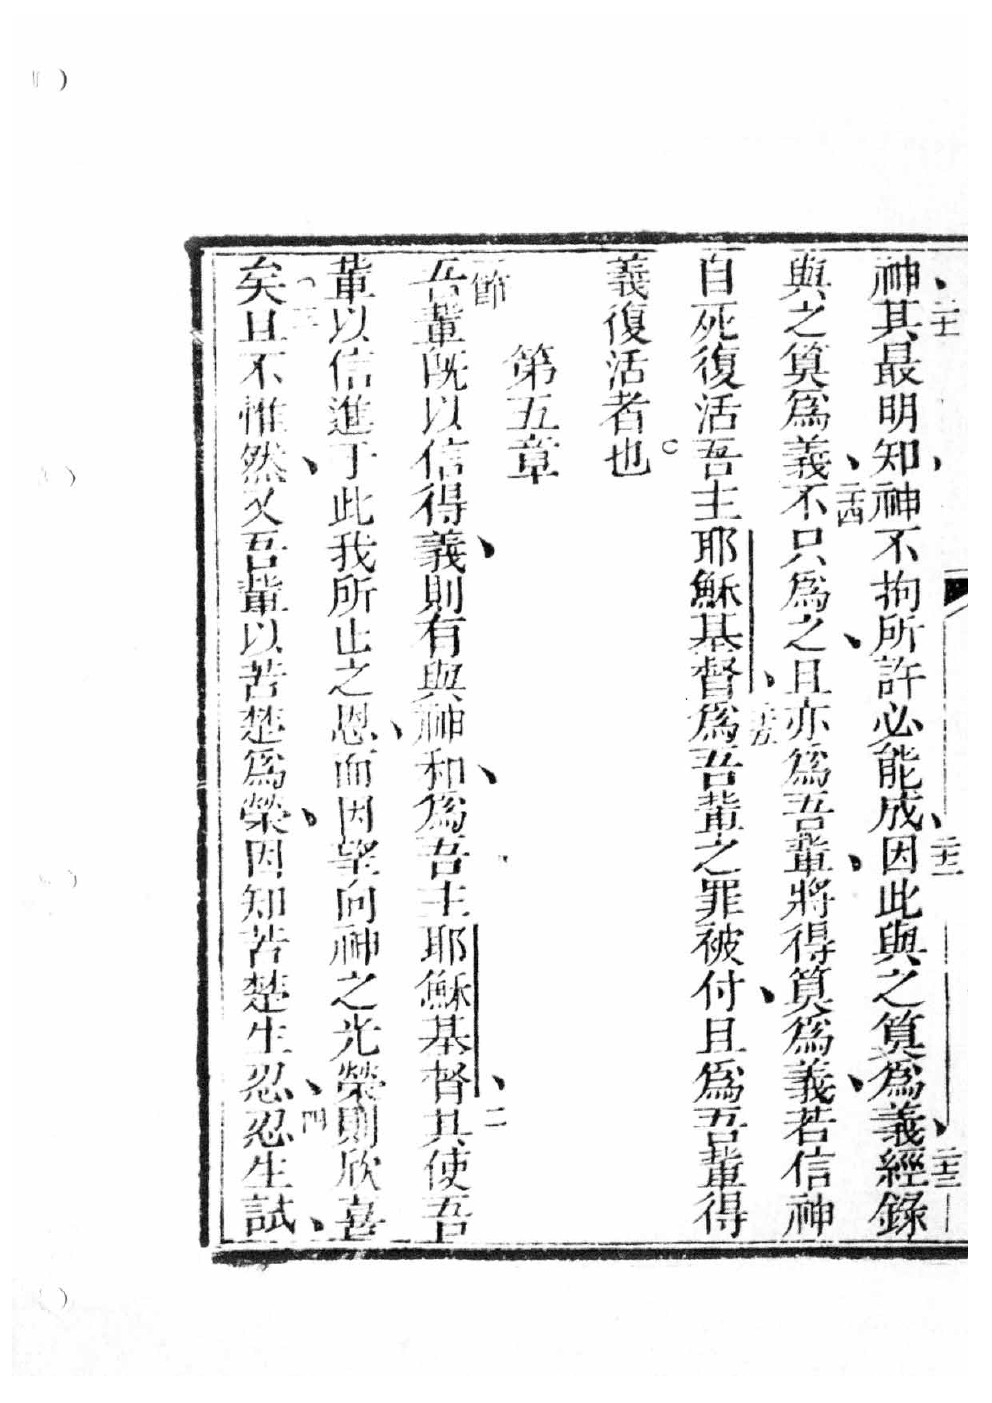 神、其二十一最明知、神不拘所許必能成、因二十二此與之算爲義、經二十三錄
與之算爲義、不二十四只爲之、且亦爲吾輩、將得算爲義、若信神
自死復活吾主耶穌基督、爲二十五吾輩之罪被付、且爲吾輩得
義復活者也。
第五章
一節吾輩既以信得義、則有與神和、爲吾主耶穌基督、其二使吾
輩以信進于此我所止之恩、而因望向神之光榮則欣喜
矣、三且不惟然、又吾輩以苦楚爲榮、因知苦楚生忍、忍四生試、